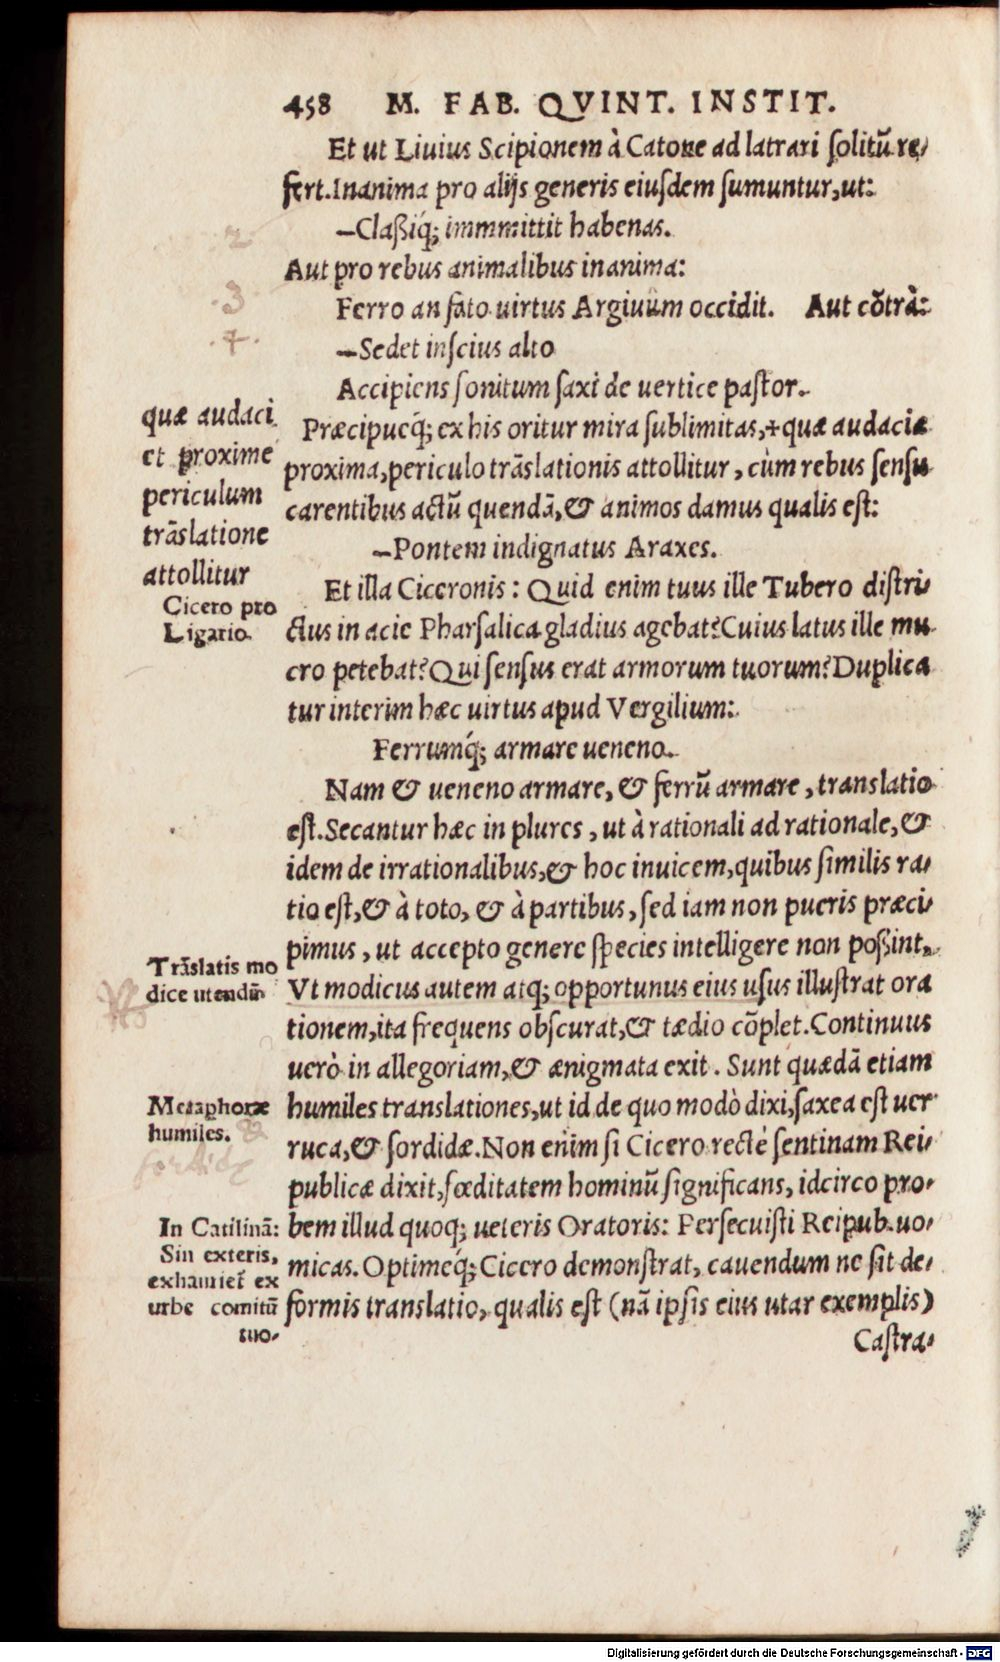 458 M. FAB. QVINT. INSTIT.
Et ut Liuius Scipionem à Catone ad latrari ſolitũ re⸗
fert. Inanima pro alijs generis eiuſdem ſumuntur, ut:
—Claßiq́; immmittit habenas.
Aut pro rebus animalibus inanima:
Ferro an fato uirtus Argiuûm occidit. Aut cõtrà:
—Sedet inſcius alto
Accipiens ſonitum ſaxi de uertice paſtor.
Præcipueq́; ex his oritur mira ſublimitas, + quæ audaciæ
proxima, periculo trãslationis attollitur, cùm rebus ſenſu
carentibus actũ quendã, & animos damus qualis eſt:
—Pontem indignatus Araxes.
Et illa Ciceronis: Quid enim tuus ille Tubero diſtri⸗
ctus in acie Pharſalica gladius agebat? Cuius latus ille mu
cro petebat? Qui ſenſus erat armorum tuorum? Duplica
tur interim hæc uirtus apud Vergilium:
Ferrumq́; armare ueneno.
Nam & ueneno armare, & ferrũ armare, translatio
eſt. Secantur hæc in plures, ut à rationali ad rationale, &
idem de irrationalibus, & hoc inuicem, quibus ſimilis ra⸗
tio eſt, & à toto, & à partibus, ſed iam non pueris præci⸗
pimus, ut accepto genere ſpecies intelligere non poßint.
Vt modicus autem atq; opportunus eius uſus illuſtrat ora
tionem, ita frequens obſcurat, & tædio cõplet. Continuus
uerò in allegoriam, & ænigmata exit. Sunt quædã etiam
humiles translationes, ut id de quo modò dixi, ſaxea eſt uer
ruca, & ſordidæ. Non enim ſi Cicero rectè ſentinam Rei⸗
publicæ dixit, fœditatem hominũ ſignificans, idcirco pro⸗
bem illud quoq; ueteris Oratoris: Perſecuiſti Reipub. uo⸗
micas. Optimeq́; Cicero demonſtrat, cauendum ne ſit de⸗
formis translatio, qualis eſt (nã ipſis eius utar exemplis)
Caſtra⸗
2
3
4
quæ audaci
et proxime
periculum
trãslatione
attollitur
Cicero pro
Ligario.
Trãslatis mo
dice utendũ
Metaphoræ
humiles. &
ſordidæ
In Catilinã:
Sin exteris,
exhauriet̃ ex
urbe comitũ
tuo⸗
Digitalisierung gefördert durch die Deutsche Forschungsgemeinschaft - DFG